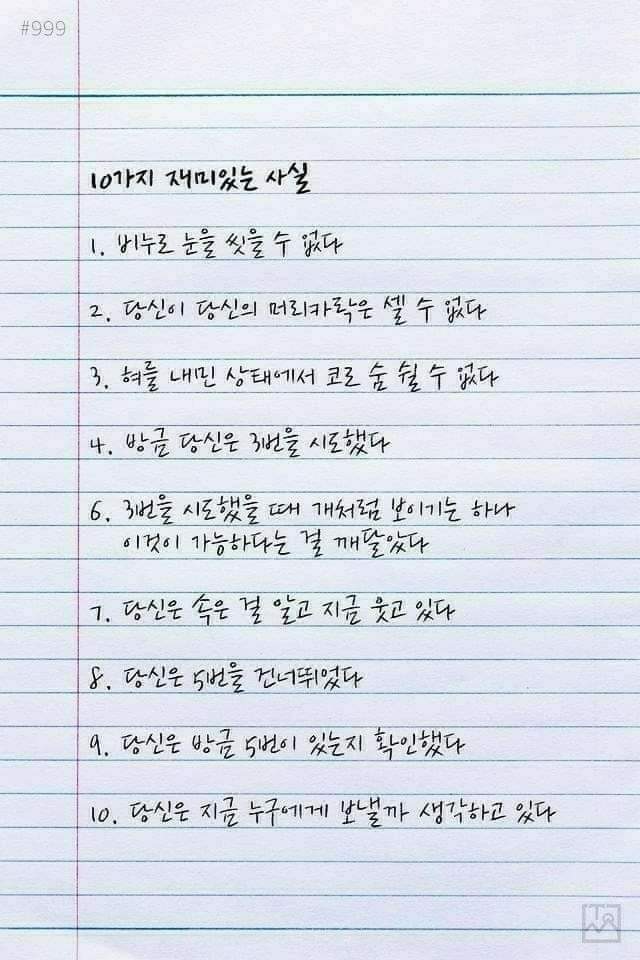 #999
10가지 재미있는 사실
1. 비누로 눈을 씻을 수 없다
2. 당신이 당신의 머리카락은 셀 수 없다
3. 혀를 내민 상태에서 코로 숨 쉴 수 없다
4. 방금 당신은 3번을 시도했다
6. 3번을 시도했을 때 개처럼 보이기는 하나
이것이 가능하다는 걸 깨달았다
7. 당신은 속은 걸 알고 지금 웃고 있다
8. 당신은 5번을 건너뛰었다
9. 당신은 방금 5번이 있는지 확인했다
10. 당신은 지금 누구에게 보낼까 생각하고 있다